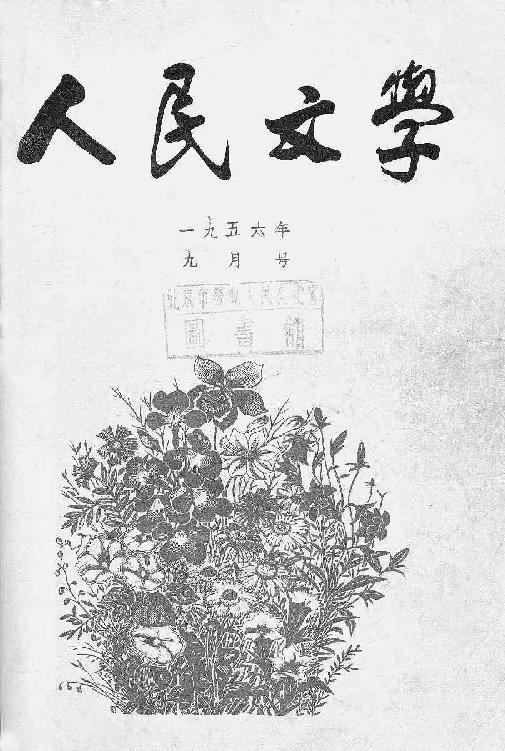 人民文學
一九五六年
九月号
北京市勞動人民文化宮
圖書館